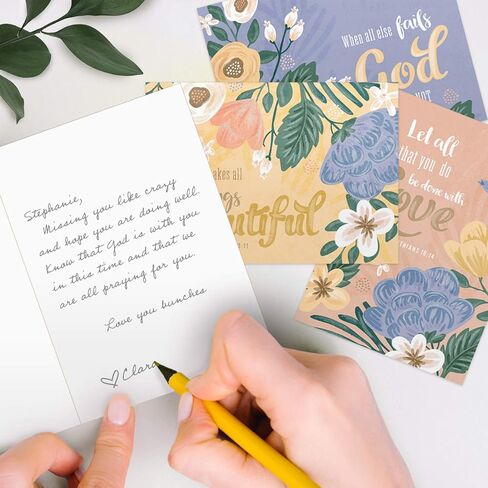 Stephanie,
Missing you like crazy
and hope you are doing well.
Know that God is with you
in this time and that we
are all praying for you.
Love you bunches
♡Clara
When all else fails
God
NOT
akes all
ngs
eautiful
3:11
Let all
that you do
be done with
Love
NTHIANS 16:14